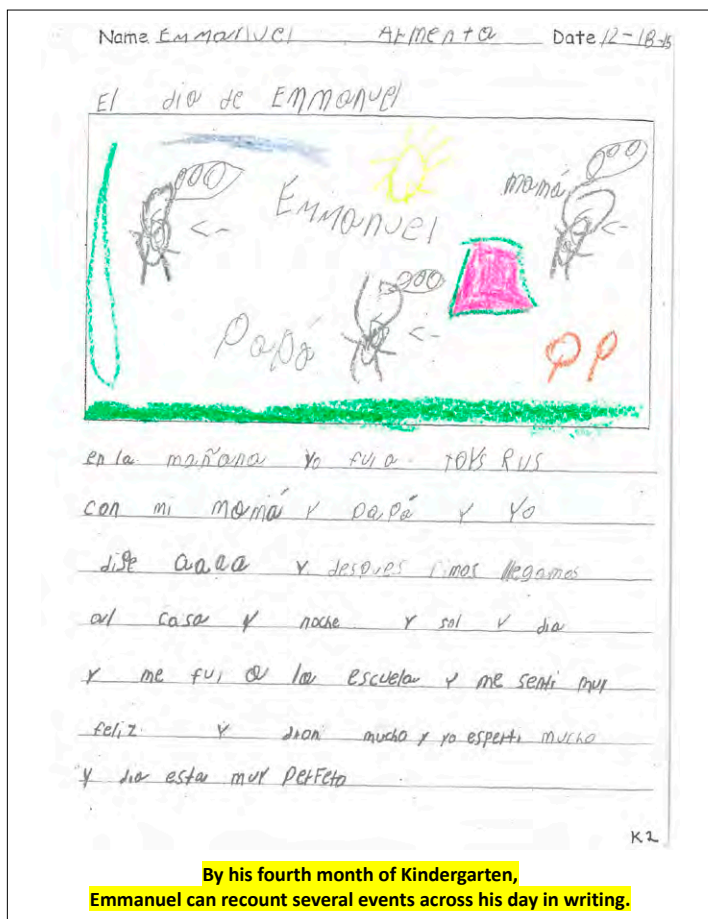 Name Emmanuel Armenta Date 12-18-15
El dia de Emmanuel
mamá
Emmanuel
Papá
en la mañana yo fui a toys Rus
con mi mamá y papá y yo
dije aaaa y despues llegamos
al casa y noche y sol y dia
y me fui a la escuela y me senti muy
feliz y dion mucho y yo esperti mucho
y dia esta muy perfeto
K2
By his fourth month of Kindergarten,
Emmanuel can recount several events across his day in writing.